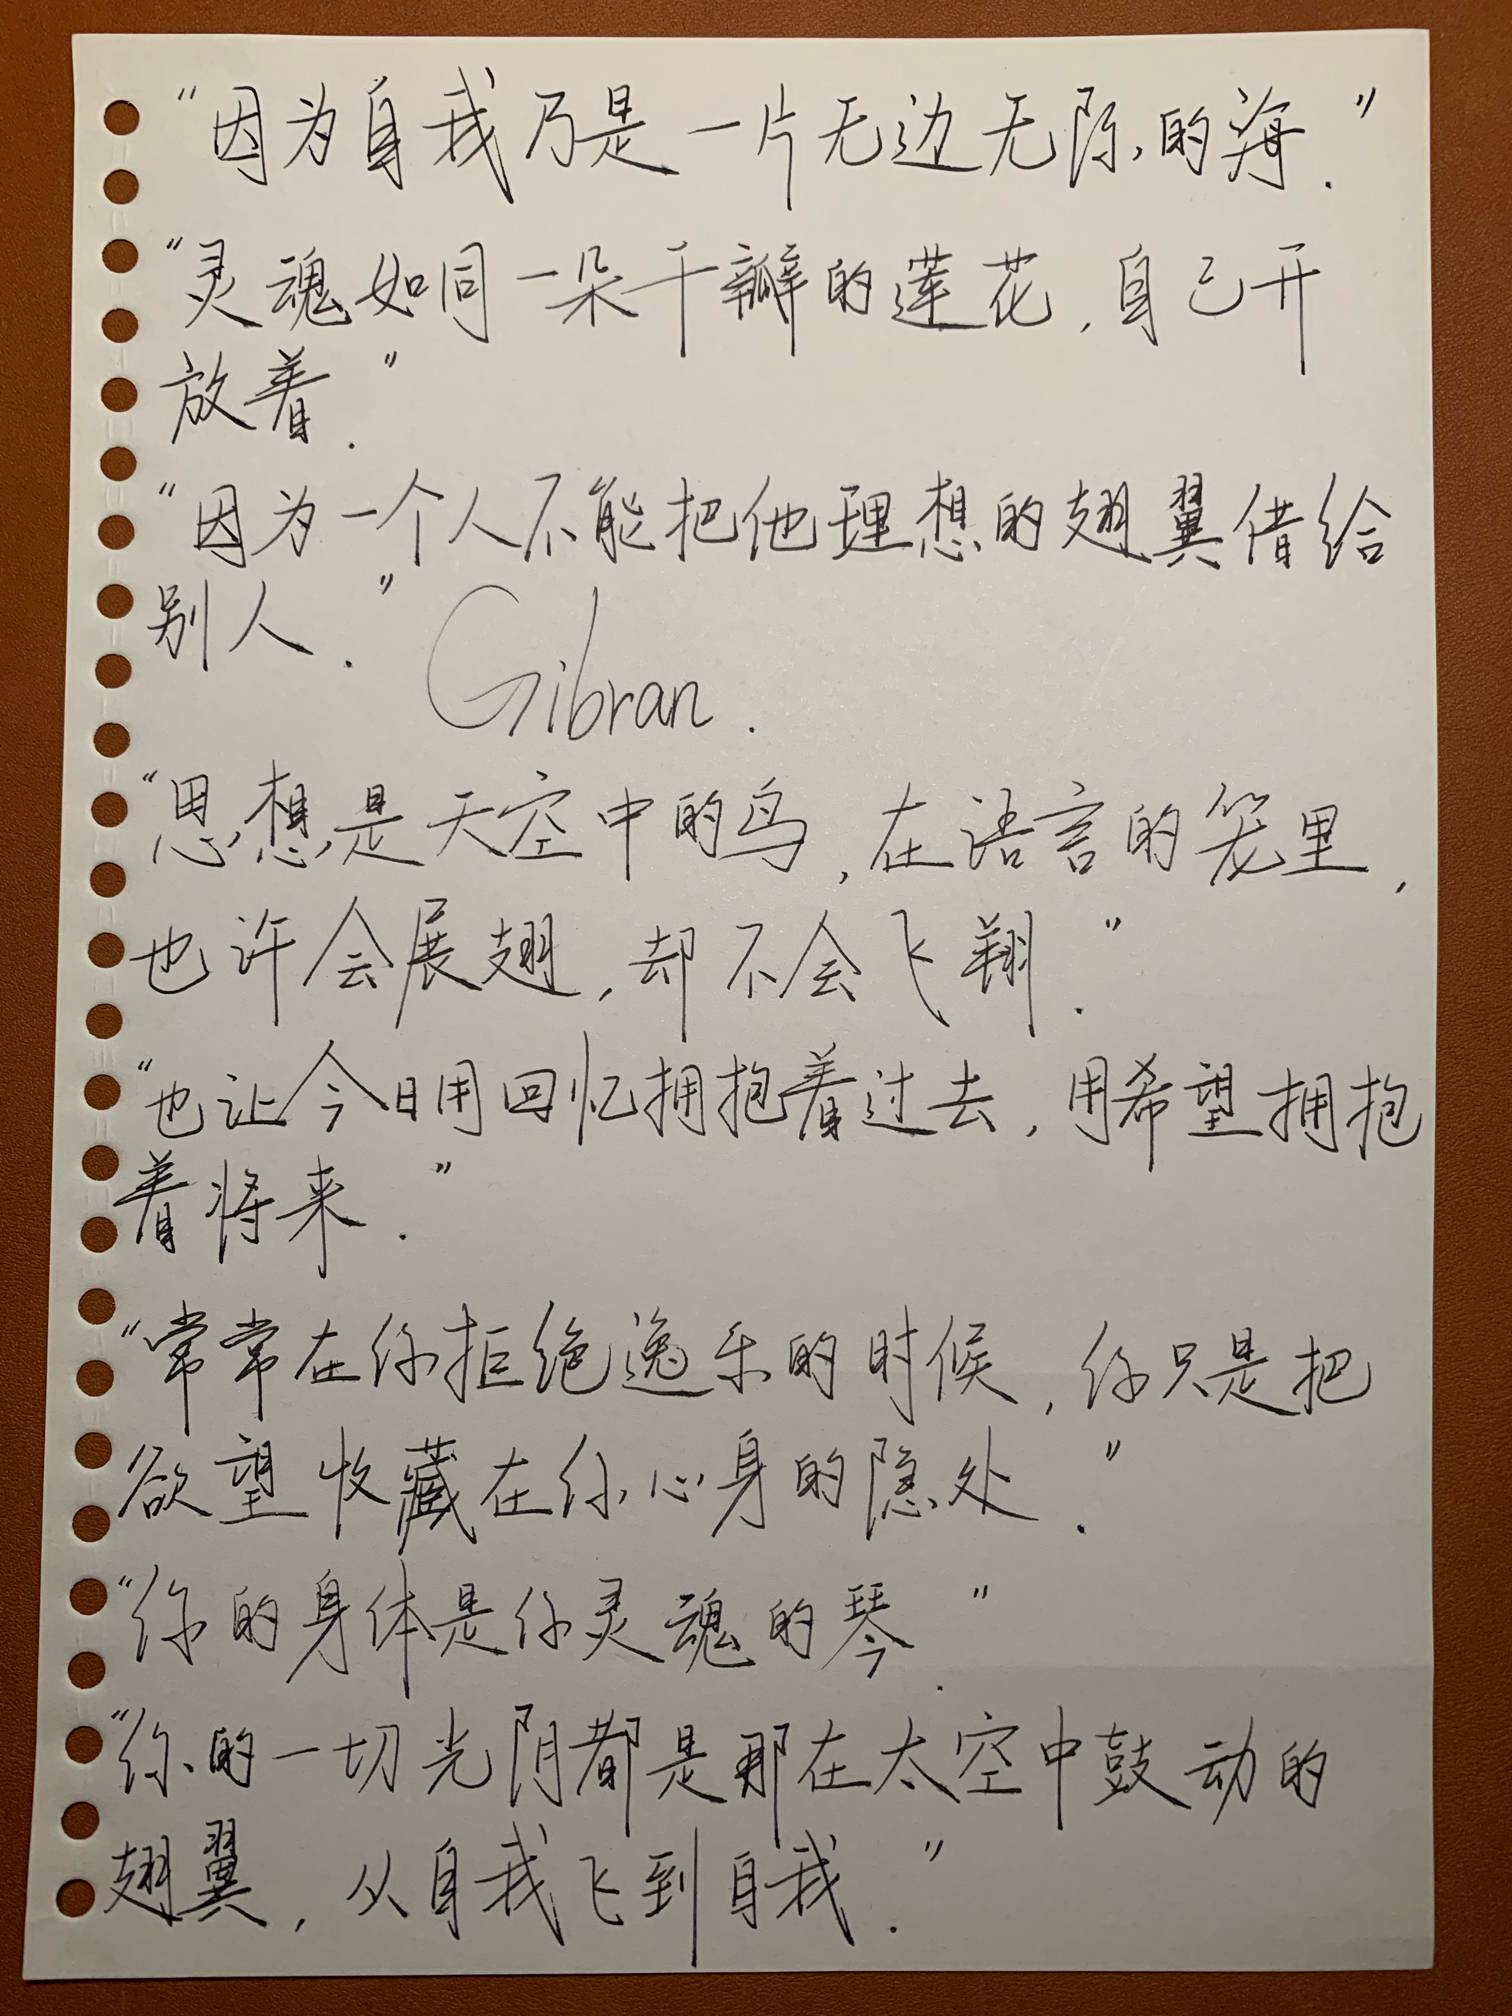 “因为自我乃是一片无边无际的海.”
“灵魂如同一朵千瓣的莲花,自己开
放着.”
“因为一个人不能把他理想的翅翼借给
别人.”
Gibran.
“思想是天空中的鸟,在语言的笼里,
也许会展翅,却不会飞翔.”
“也让今日用回忆拥抱着过去,用希望拥抱
着将来.”
“常常在你拒绝逸乐的时候,你只是把
欲望收藏在你心身的隐处.”
“你的身体是你灵魂的琴.”
“你的一切光阴都是那在太空中鼓动的
翅翼,从自我飞到自我.”